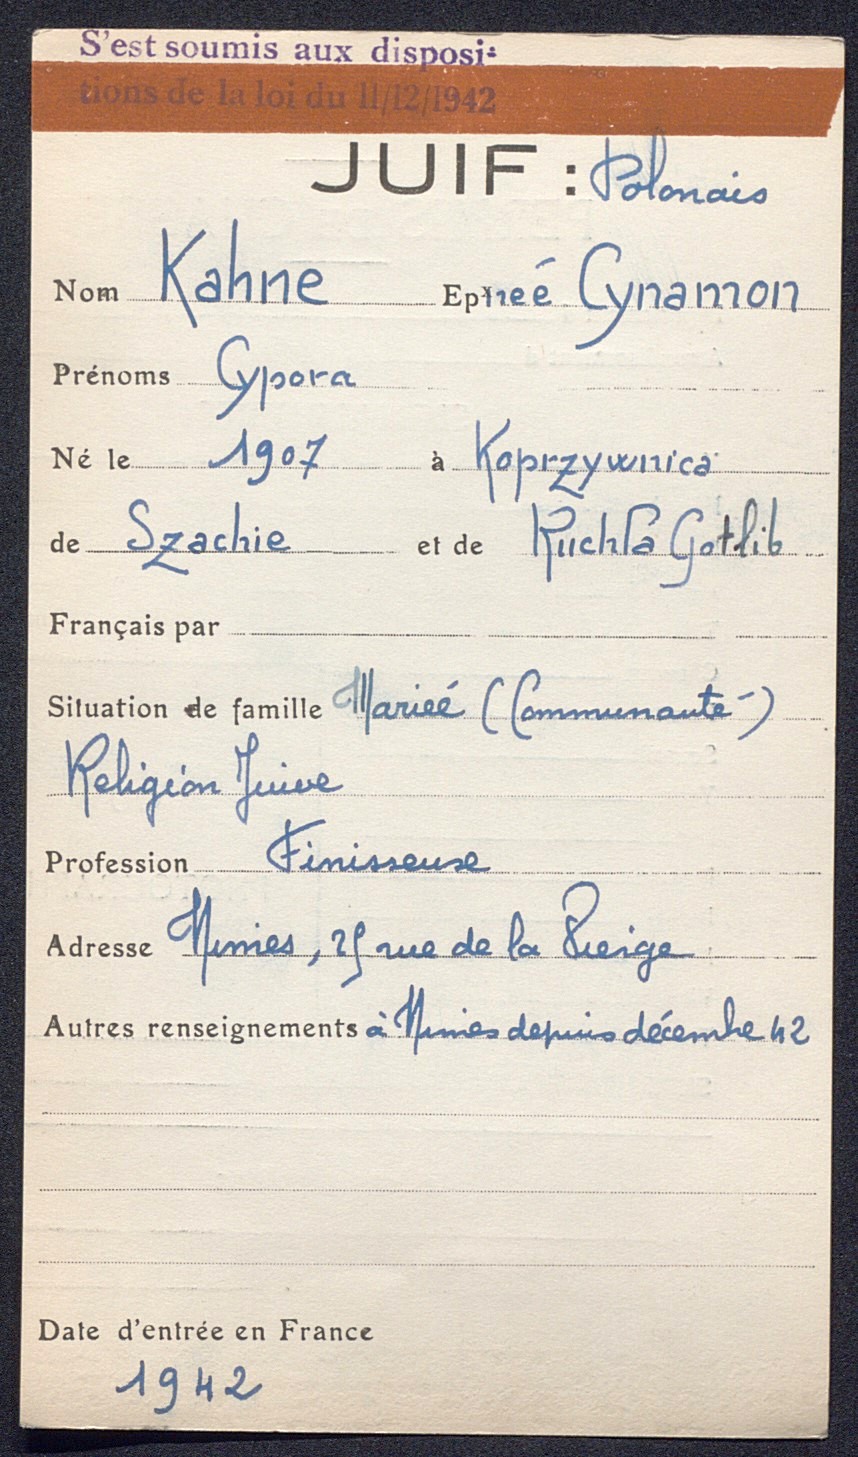 S'est soumis aux disposi-
tions de la loi du 11/12/1942
JUIF : Polonais
Nom Kahne Ep neé Cynamon
Prénoms Cypora
Né le 1907 à Koprzywnica
de Szachie et de Ruchla Gotlib
Français par
Situation de famille Marieé (Communauté)
Religion Juive
Profession Finisseuse
Adresse Nimes, 25 rue de la
Autres renseignements à Nimes depuis décembre 42
Date d'entrée en France
1942